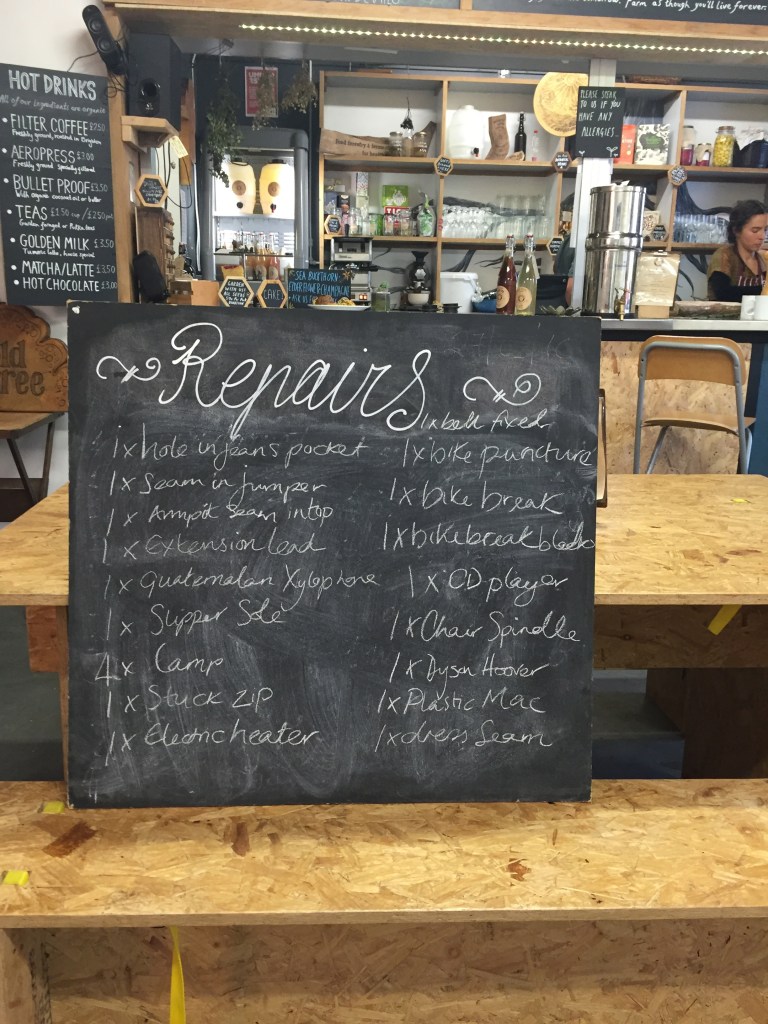 farm as though you'll live forever.
HOT DRINKS
All of our ingredients are organic
• FILTER COFFEE £2.50
• AEROPRESS £3.00
• BULLET PROOF £3.50
With organic coconut oil or butter
• TEAS £1.50 cup / £2.50 pot
• GOLDEN MILK £3.50
• MATCHA/LATTE £3.50
• HOT CHOCOLATE £3.00
PLEASE SPEAK
TO US IF YOU
HAVE ANY
ALLERGIES.
SEA BUCKTHORN
CAKE
Repairs
1x hole in jeans pocket
1x Seam in jumper
1x Armpit Seam in top
1x Extension lead
1x Guatemalan Xylophone
1x Slipper Sole
4x Lamp
1x Stuck zip
1x Electric heater
1x belt fixed
1x bike puncture
1x bike break
1x bike break blocks
1x CD player
1x Chair Spindle
1x Dyson Hoover
1x Plastic Mac
1x dress Seam